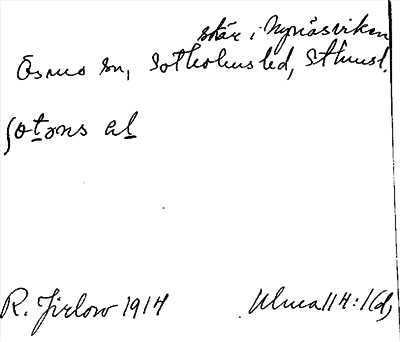 skär i Nynäsviken
Ösmo sn, Sotholms hd, Sthmsl.
ʃotons al
R. Jirlow 1914 Ulma 114:1(d)